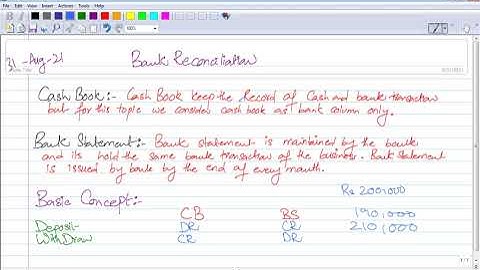 31-Aug-21
Bank Reconciliation
Cash Book:- Cash Book keep the Record of Cash and bank transaction
but for this topic we consider cash book as bank column only.
Bank Statement:- Bank statement is maintained by the bank
and its hold the same bank transaction of the business. Bank Statement
is issued by bank by the end of every month.
Rs 200,000
Basic Concept:-
CB BS 190,000
Deposit- DR CR 210,000
WithDraw CR DR